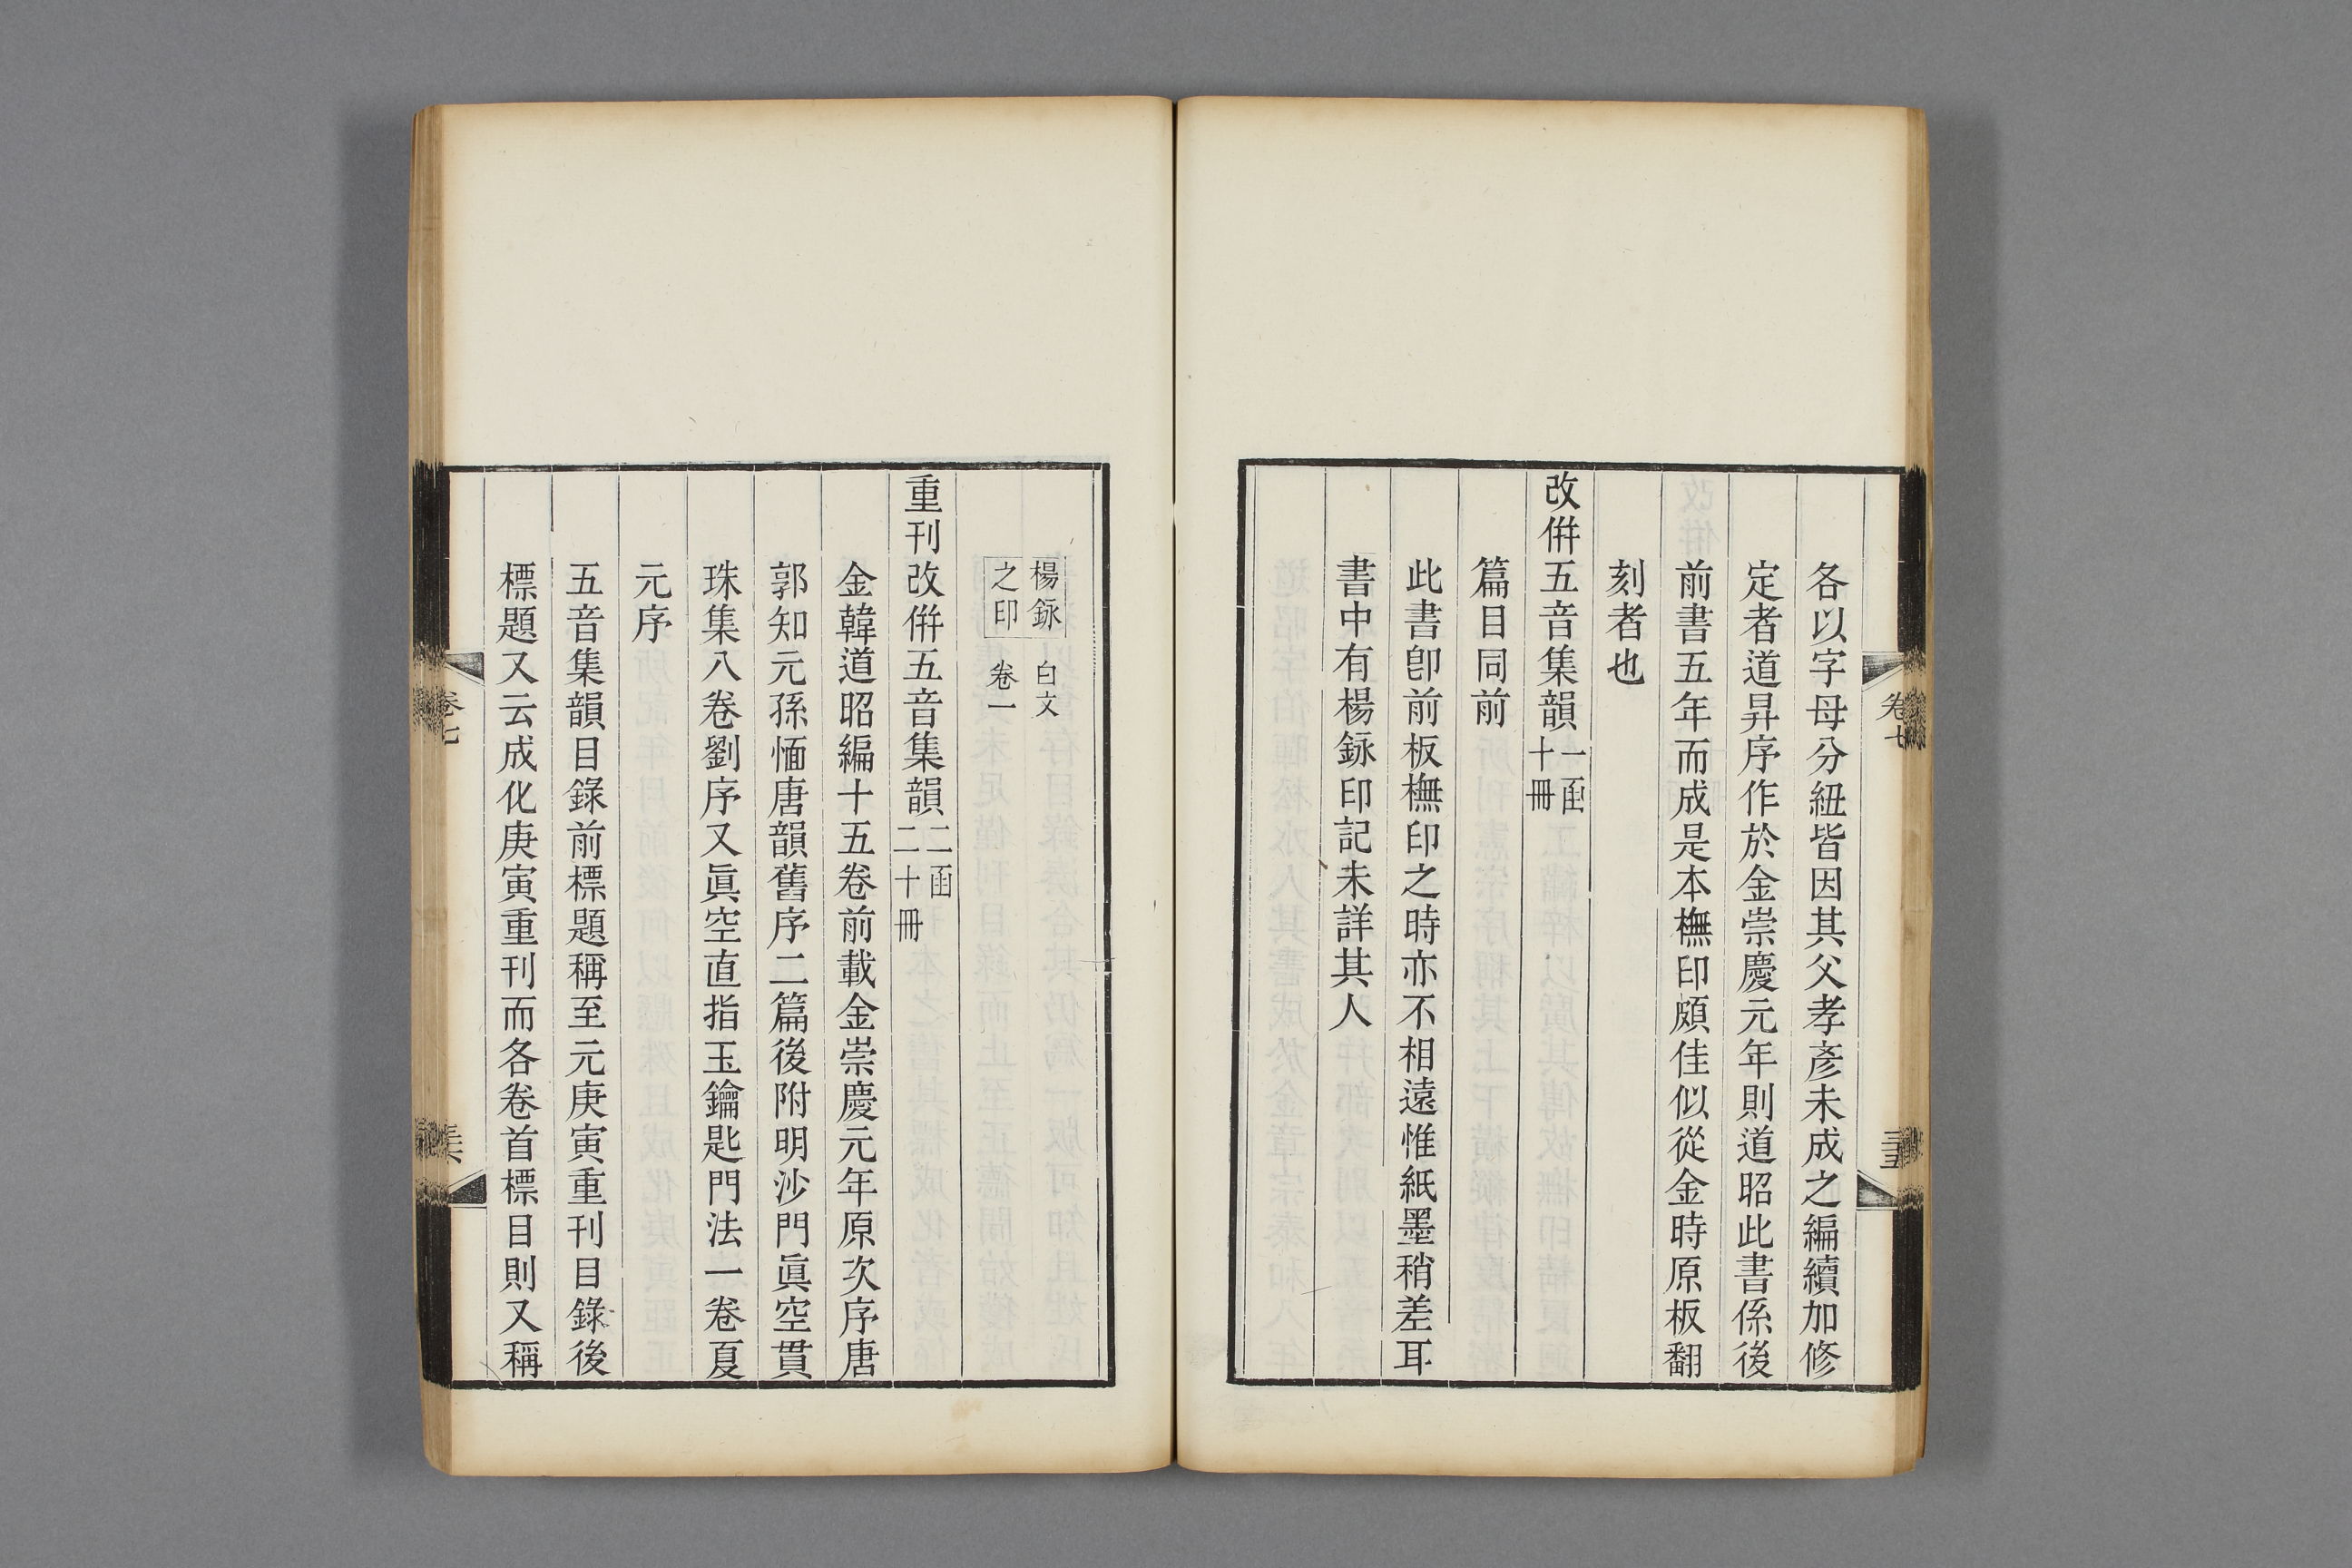 各以字母分紐皆因其父孝彥未成之編續加修
定者道昇序作於金崇慶元年則道昭此書係後
前書五年而成是本橅印頗佳似從金時原板翻
刻者也
改倂五音集韻一函十冊
篇目同前
此書卽前板橅印之時亦不相遠惟紙墨稍差耳
書中有楊鉨印記未詳其人
楊鉨之印 白文 卷一
重刊改倂五音集韻二函二十冊
金韓道昭編十五卷前載金崇慶元年原次序唐
郭知元孫愐唐韻舊序二篇後附明沙門眞空貫
珠集八卷劉序又眞空直指玉鑰匙門法一卷夏
元序
五音集韻目錄前標題稱至元庚寅重刊目錄後
標題又云成化庚寅重刊而各卷首標目則又稱
卷七
卷七